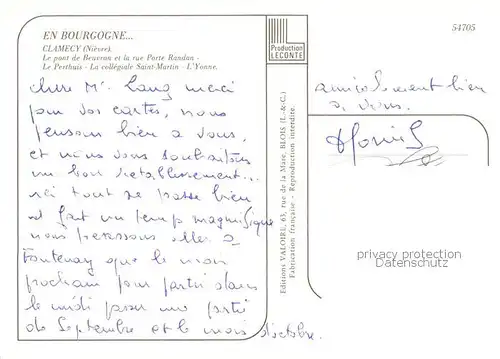 EN BOURGOGNE...
CLAMECY (Nièvre).
Le pont de Beuvron et la rue Porte Randan -
Le Perthuis - La collégiale Saint-Martin - L'Yonne.
54705
Production
LECONTE
Editions VALOIRE, 63, rue de la Mare, BLOIS (L.-&-C.)
Fabrication française - Reproduction interdite.
cher Mr Lang merci
pour vos cartes, nous
pensons bien a vous,
et nous vous souhaitons
un bon retablissement...
ici tout se passe bien
il fait un temp magnifique
nous pensons aller a
Fontenay que le mois
prochain pour partir dans
le midi pour une partie
de Septembre et le mois d'octobre.
amicalement bien
a vous.
privacy protection
Datenschutz